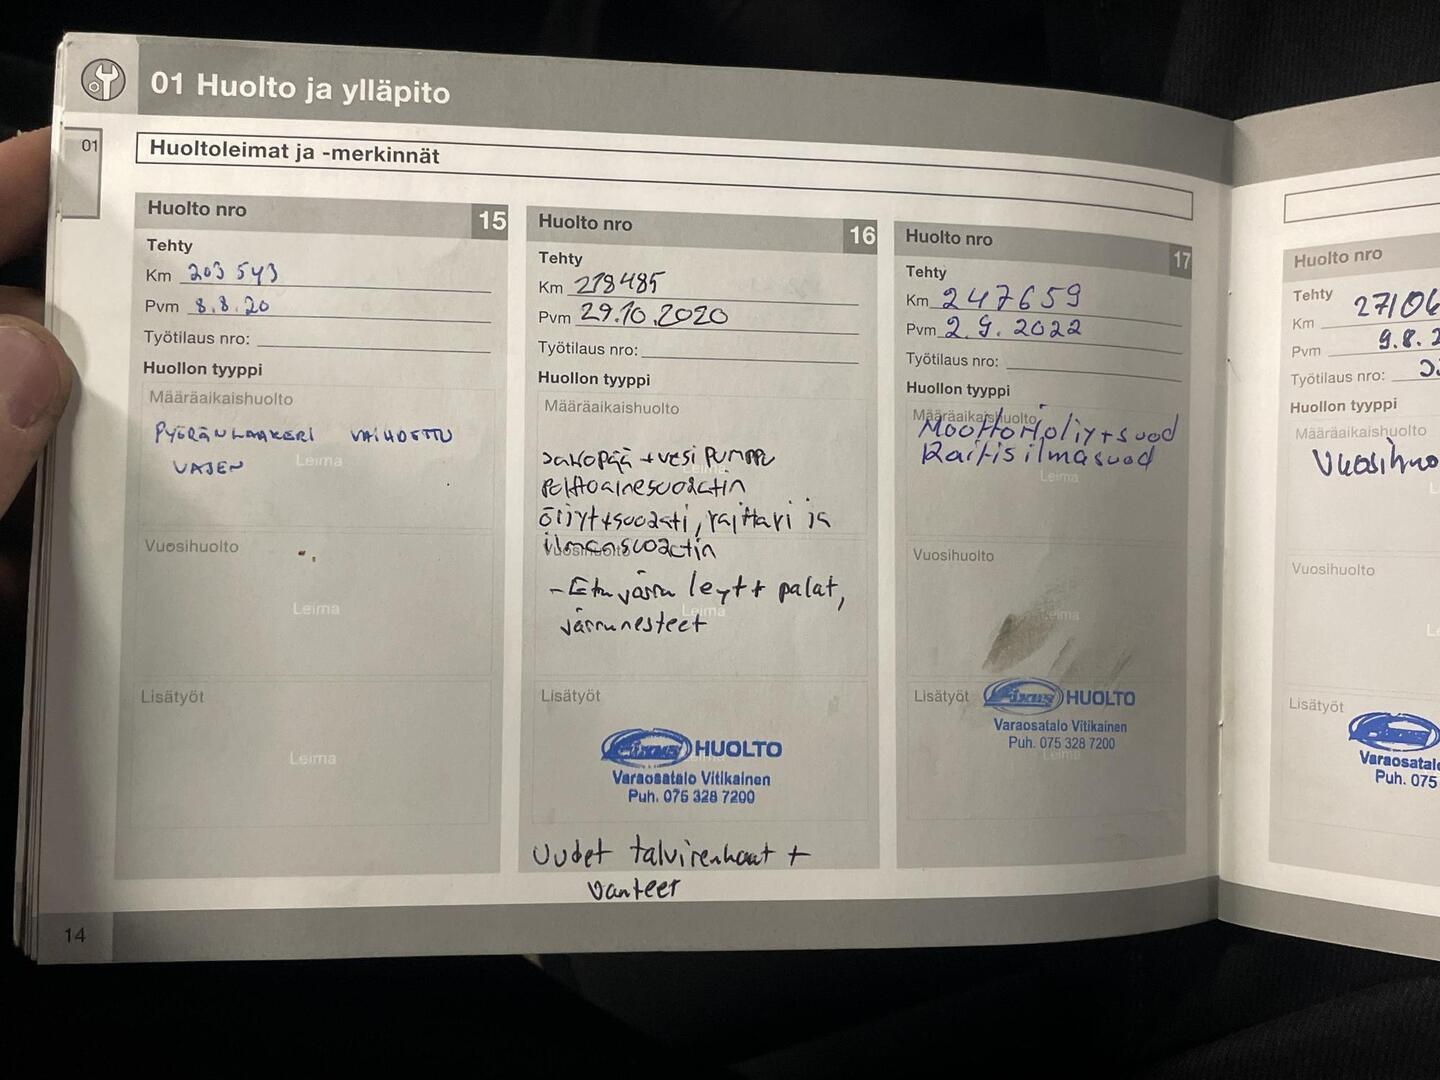 01 Huolto ja ylläpito
01
Huoltoleimat ja -merkinnät
Huolto nro 15
Tehty
Km 203 543
Pvm 8.8.20
Työtilaus nro:
Huollon tyyppi
Määräaikaishuolto
PYÖRÄNLAAKERI VAIHDETTU
VASEN
Leima
Vuosihuolto
Leima
Lisätyöt
Leima
Huolto nro 16
Tehty
Km 218485
Pvm 29.10.2020
Työtilaus nro:
Huollon tyyppi
Määräaikaishuolto
Jakopää + vesipumppu
Leima
polttoainesuodatin
öljyt+suodati, raittari ja
ilmansuodatin
Vuosihuolto
- Etu jarru levyt + palat,
Leima
jarrunesteet
Lisätyöt
Fixus HUOLTO
Leima
Varaosatalo Vitikainen
Puh. 075 328 7200
Uudet talvirenkaat +
vanteet
Huolto nro 17
Tehty
Km 247659
Pvm 2.9.2022
Työtilaus nro:
Huollon tyyppi
Määräaikaishuolto
Moottoriöljyt+suod
Raitisilmasuod
Leima
Vuosihuolto
Leima
Lisätyöt
Fixus HUOLTO
Varaosatalo Vitikainen
Puh. 075 328 7200
Leima
Huolto nro
Tehty
Km
Pvm 9.8.
Työtilaus nro:
Huollon tyyppi
Määräaikaishuolto
Vuosihuo
Vuosihuolto
Lisätyöt
Varaosatal
Puh. 075
14